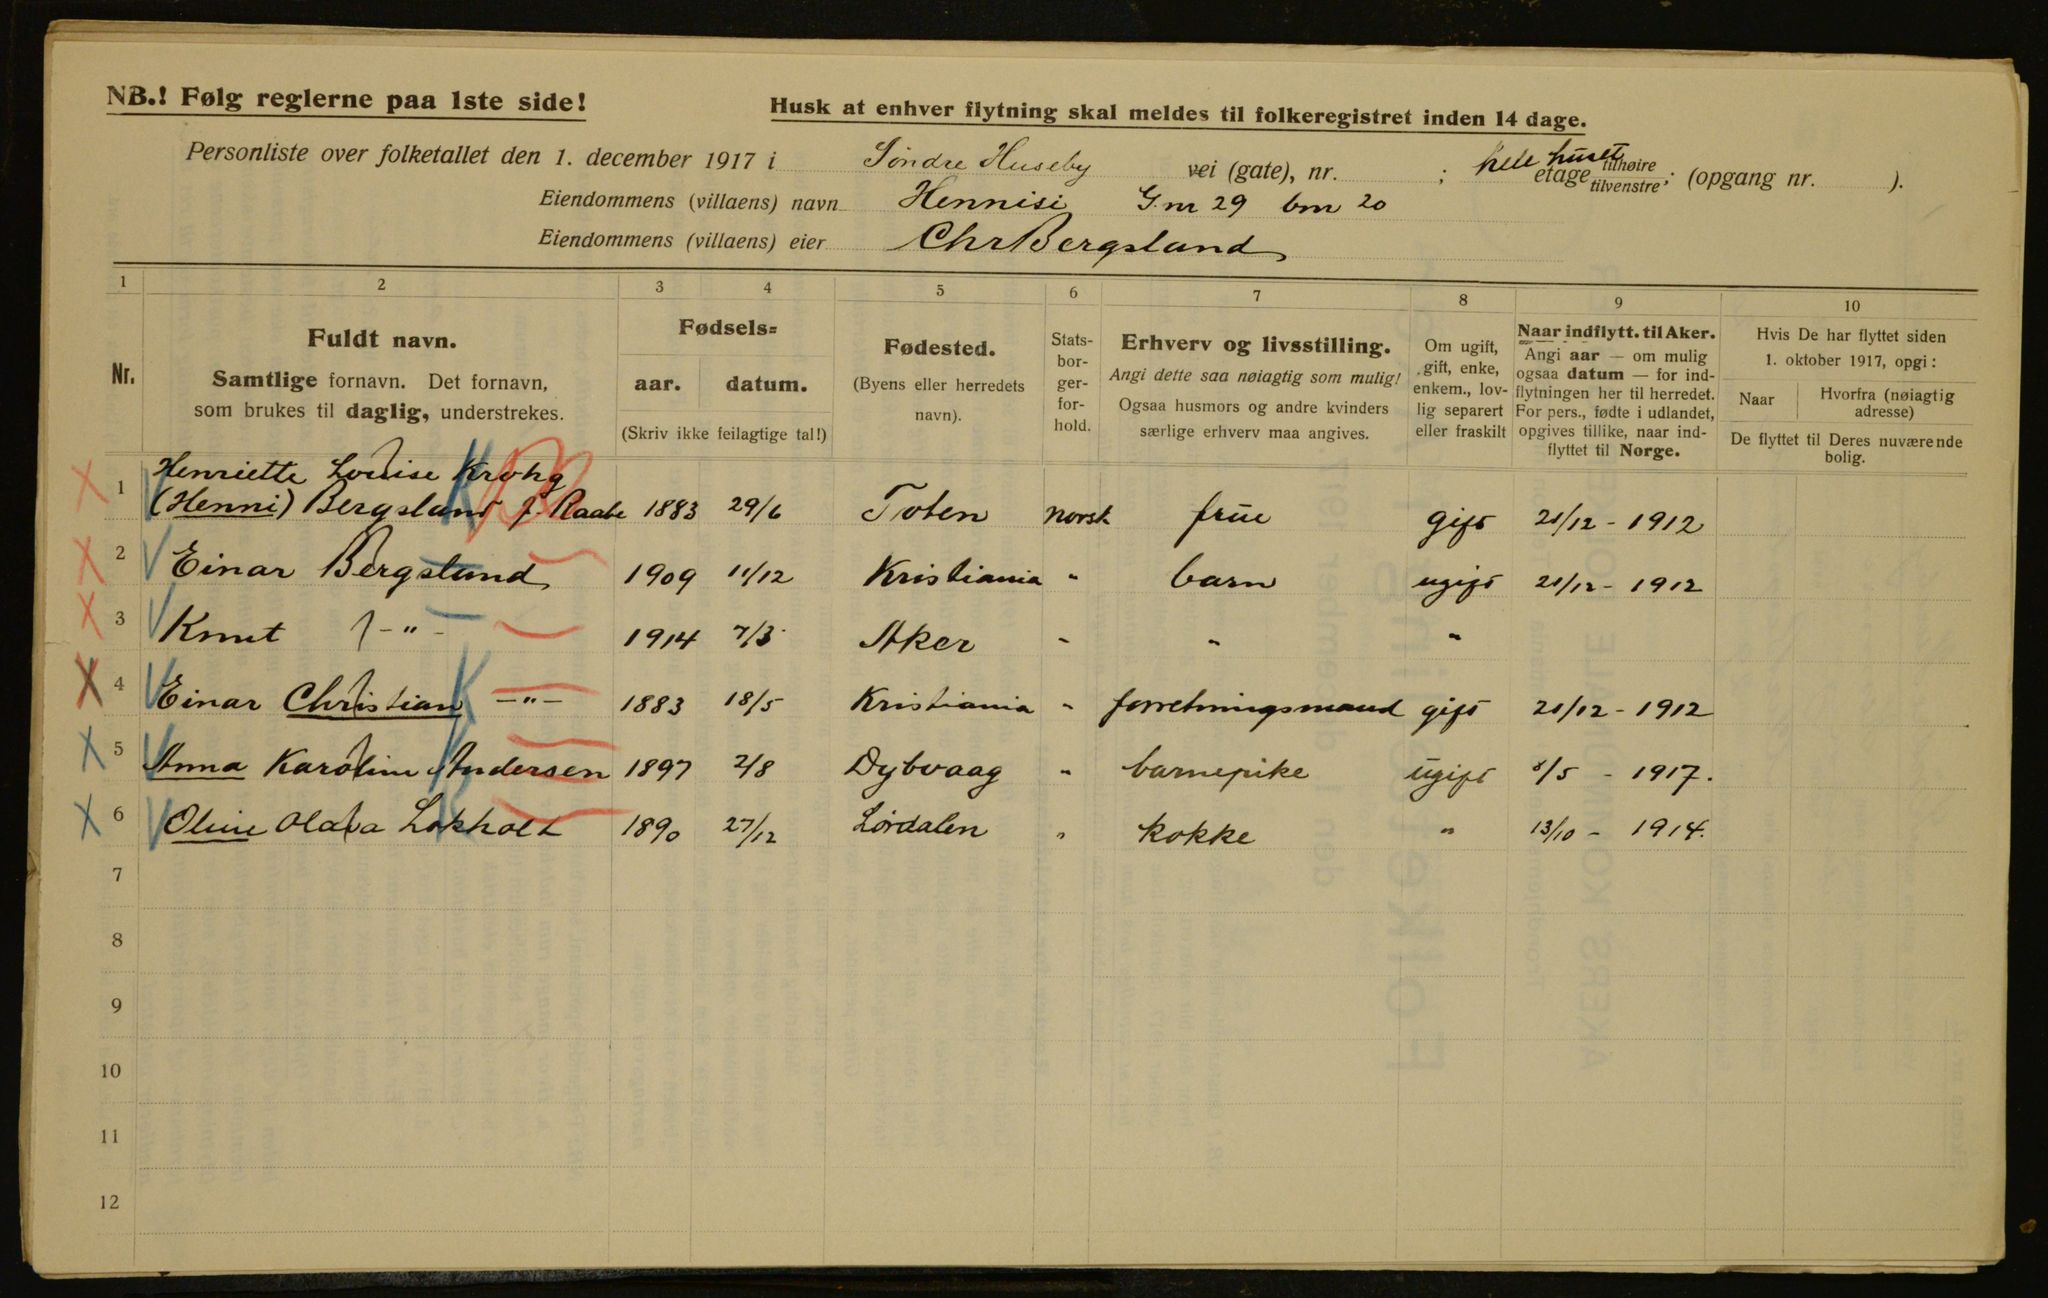 NB.! Følg reglerne paa 1ste side!
Husk at enhver flytning skal meldes til folkeregistret inden 14 dage.
Personliste over folketallet den 1. december 1917 i Søndre Huseby vei (gate), nr. ; hele huset etage tilhøire tilvenstre; (opgang nr. ).
Eiendommens (villaens) navn Hennisi Gnr 29 bnr 20
Eiendommens (villaens) eier Chr Bergsland
1 2 3 4 5 6 7 8 9 10
Nr.
Fuldt navn.
Samtlige fornavn. Det fornavn,
som brukes til daglig, understrekes.
Fødsels=
aar. datum.
(Skriv ikke feilagtige tal!)
Fødested.
(Byens eller herredets
navn).
Stats-
bor-
ger-
for-
hold.
Erhverv og livsstilling.
Angi dette saa nøiagtig som mulig!
Ogsaa husmors og andre kvinders
særlige erhverv maa angives.
Om ugift,
gift, enke,
enkem., lov-
lig separert
eller fraskilt
Naar indflytt. til Aker.
Angi aar — om mulig
ogsaa datum — for ind-
flytningen her til herredet.
For pers., fødte i udlandet,
opgives tillike, naar ind-
flyttet til Norge.
Hvis De har flyttet siden
1. oktober 1917, opgi:
Naar Hvorfra (nøiagtig
adresse)
De flyttet til Deres nuværende
bolig.
Henriette Louise Krohg
1 (Henni) Bergsland f. Raabe 1883 29/6 Toten norsk frue gift 21/12 - 1912
2 Einar Bergsland 1909 11/12 Kristiania " barn ugift 21/12 - 1912
3 Knut - " - 1914 7/3 Aker " " "
4 Einar Christian - " - 1883 18/5 Kristiania " forretningsmand gift 21/12 - 1912
5 Anna Karoline Andersen 1897 2/8 Dybvaag " barnepike ugift 8/5 - 1917.
6 Oline Olava Lokholt 1890 27/12 Lørdalen " kokke " 13/10 - 1914.
7
8
9
10
11
12